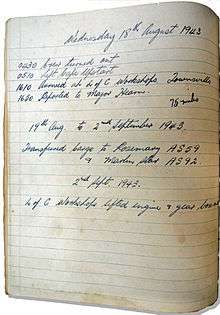 Wednesday 18th August 1943
0430 Crew turned out
0510 Left Cape Upstart
1610 Arrived at L of C Workshops Townsville
1620 Reported to Major Hearn
75 miles
19th Aug. to 2nd September 1943.
Transferred barge to Rosemary AS59
& Marlin Star AS92.
2nd Sept. 1943.
L of C Workshops lifted engine & gear